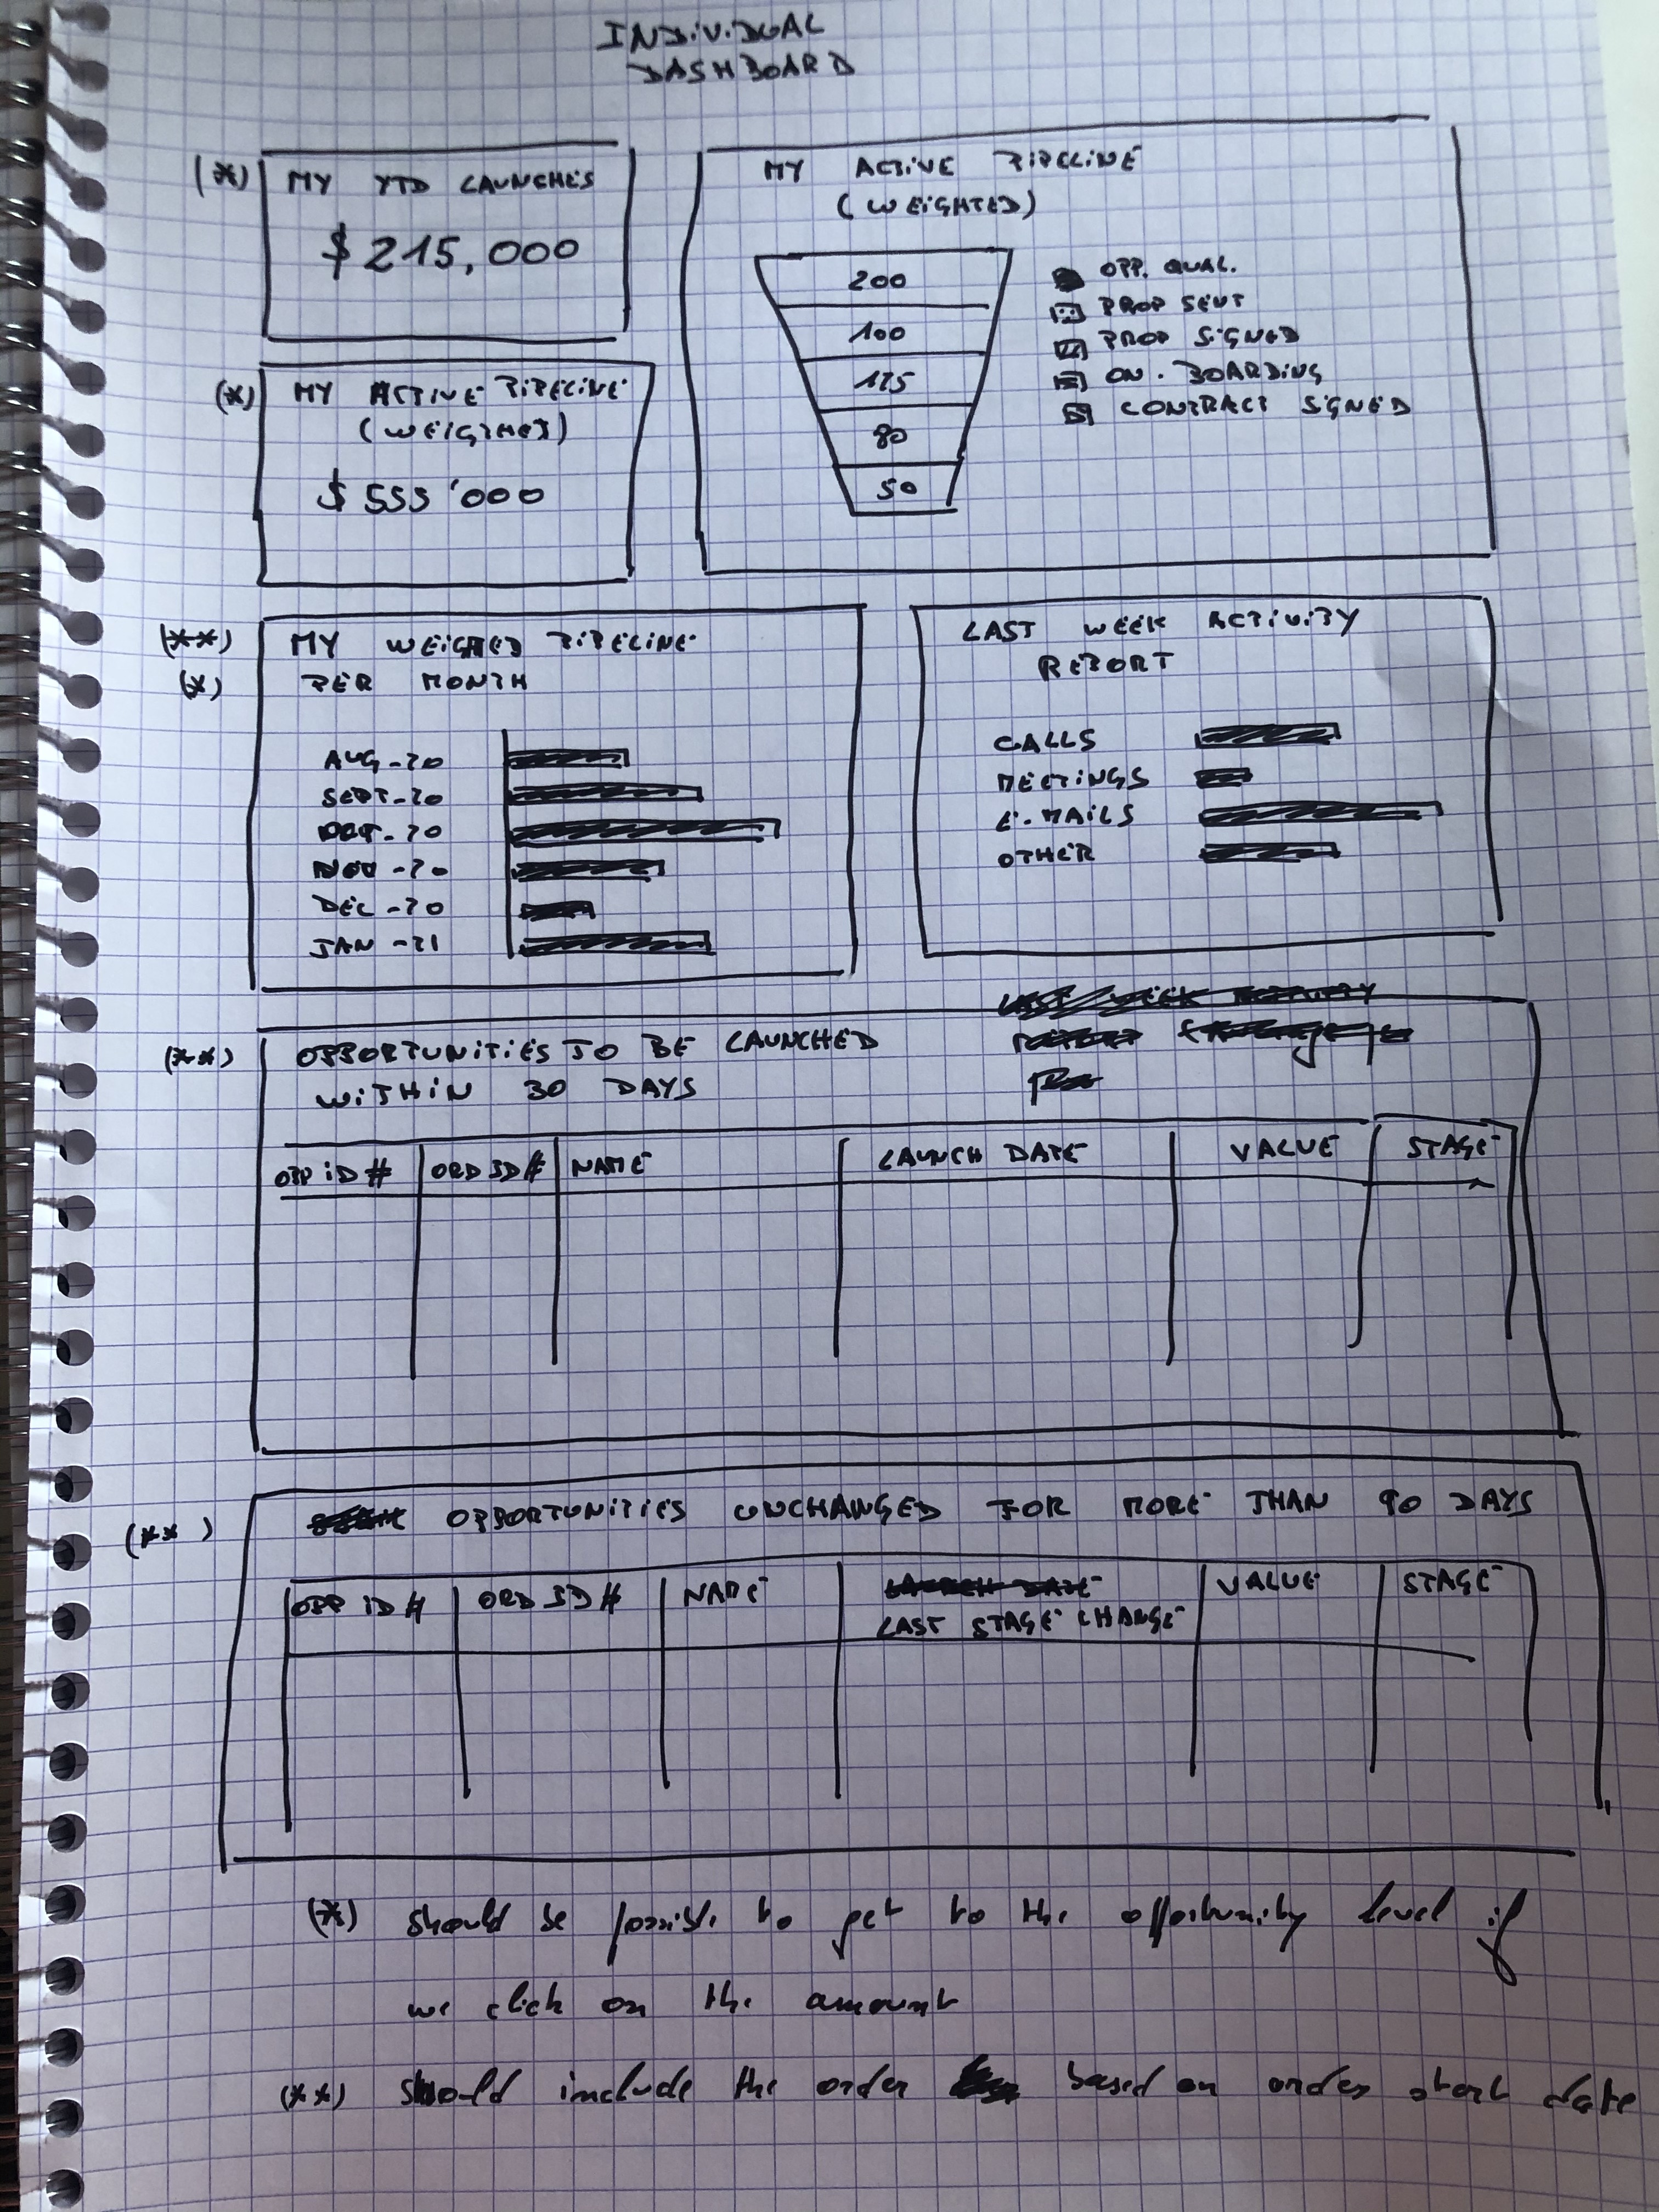 INDIVIDUAL
DASHBOARD
(*) MY YTD LAUNCHES
$ 215,000
(*) MY ACTIVE PIPELINE
(WEIGHTED)
$ 555'000
MY ACTIVE PIPELINE
(WEIGHTED)
200
100
125
80
50
OPP. QUAL.
PROP SENT
PROP SIGNED
ON-BOARDING
CONTRACT SIGNED
(**) MY WEIGHTED PIPELINE
(*) PER MONTH
AUG-20
SEPT-20
OCT-20
NOV-20
DEC-20
JAN-21
LAST WEEK ACTIVITY
REPORT
CALLS
MEETINGS
E-MAILS
OTHER
(**) OPPORTUNITIES TO BE LAUNCHED
WITHIN 30 DAYS
OPP ID # ORD ID # NAME LAUNCH DATE VALUE STAGE
(**) OPPORTUNITIES UNCHANGED FOR MORE THAN 90 DAYS
OPP ID # ORD ID # NAME LAUNCH DATE VALUE STAGE
LAST STAGE CHANGE
(*) should be possible to get to the opportunity level if
we click on the amount
(**) should include the order based on order start date